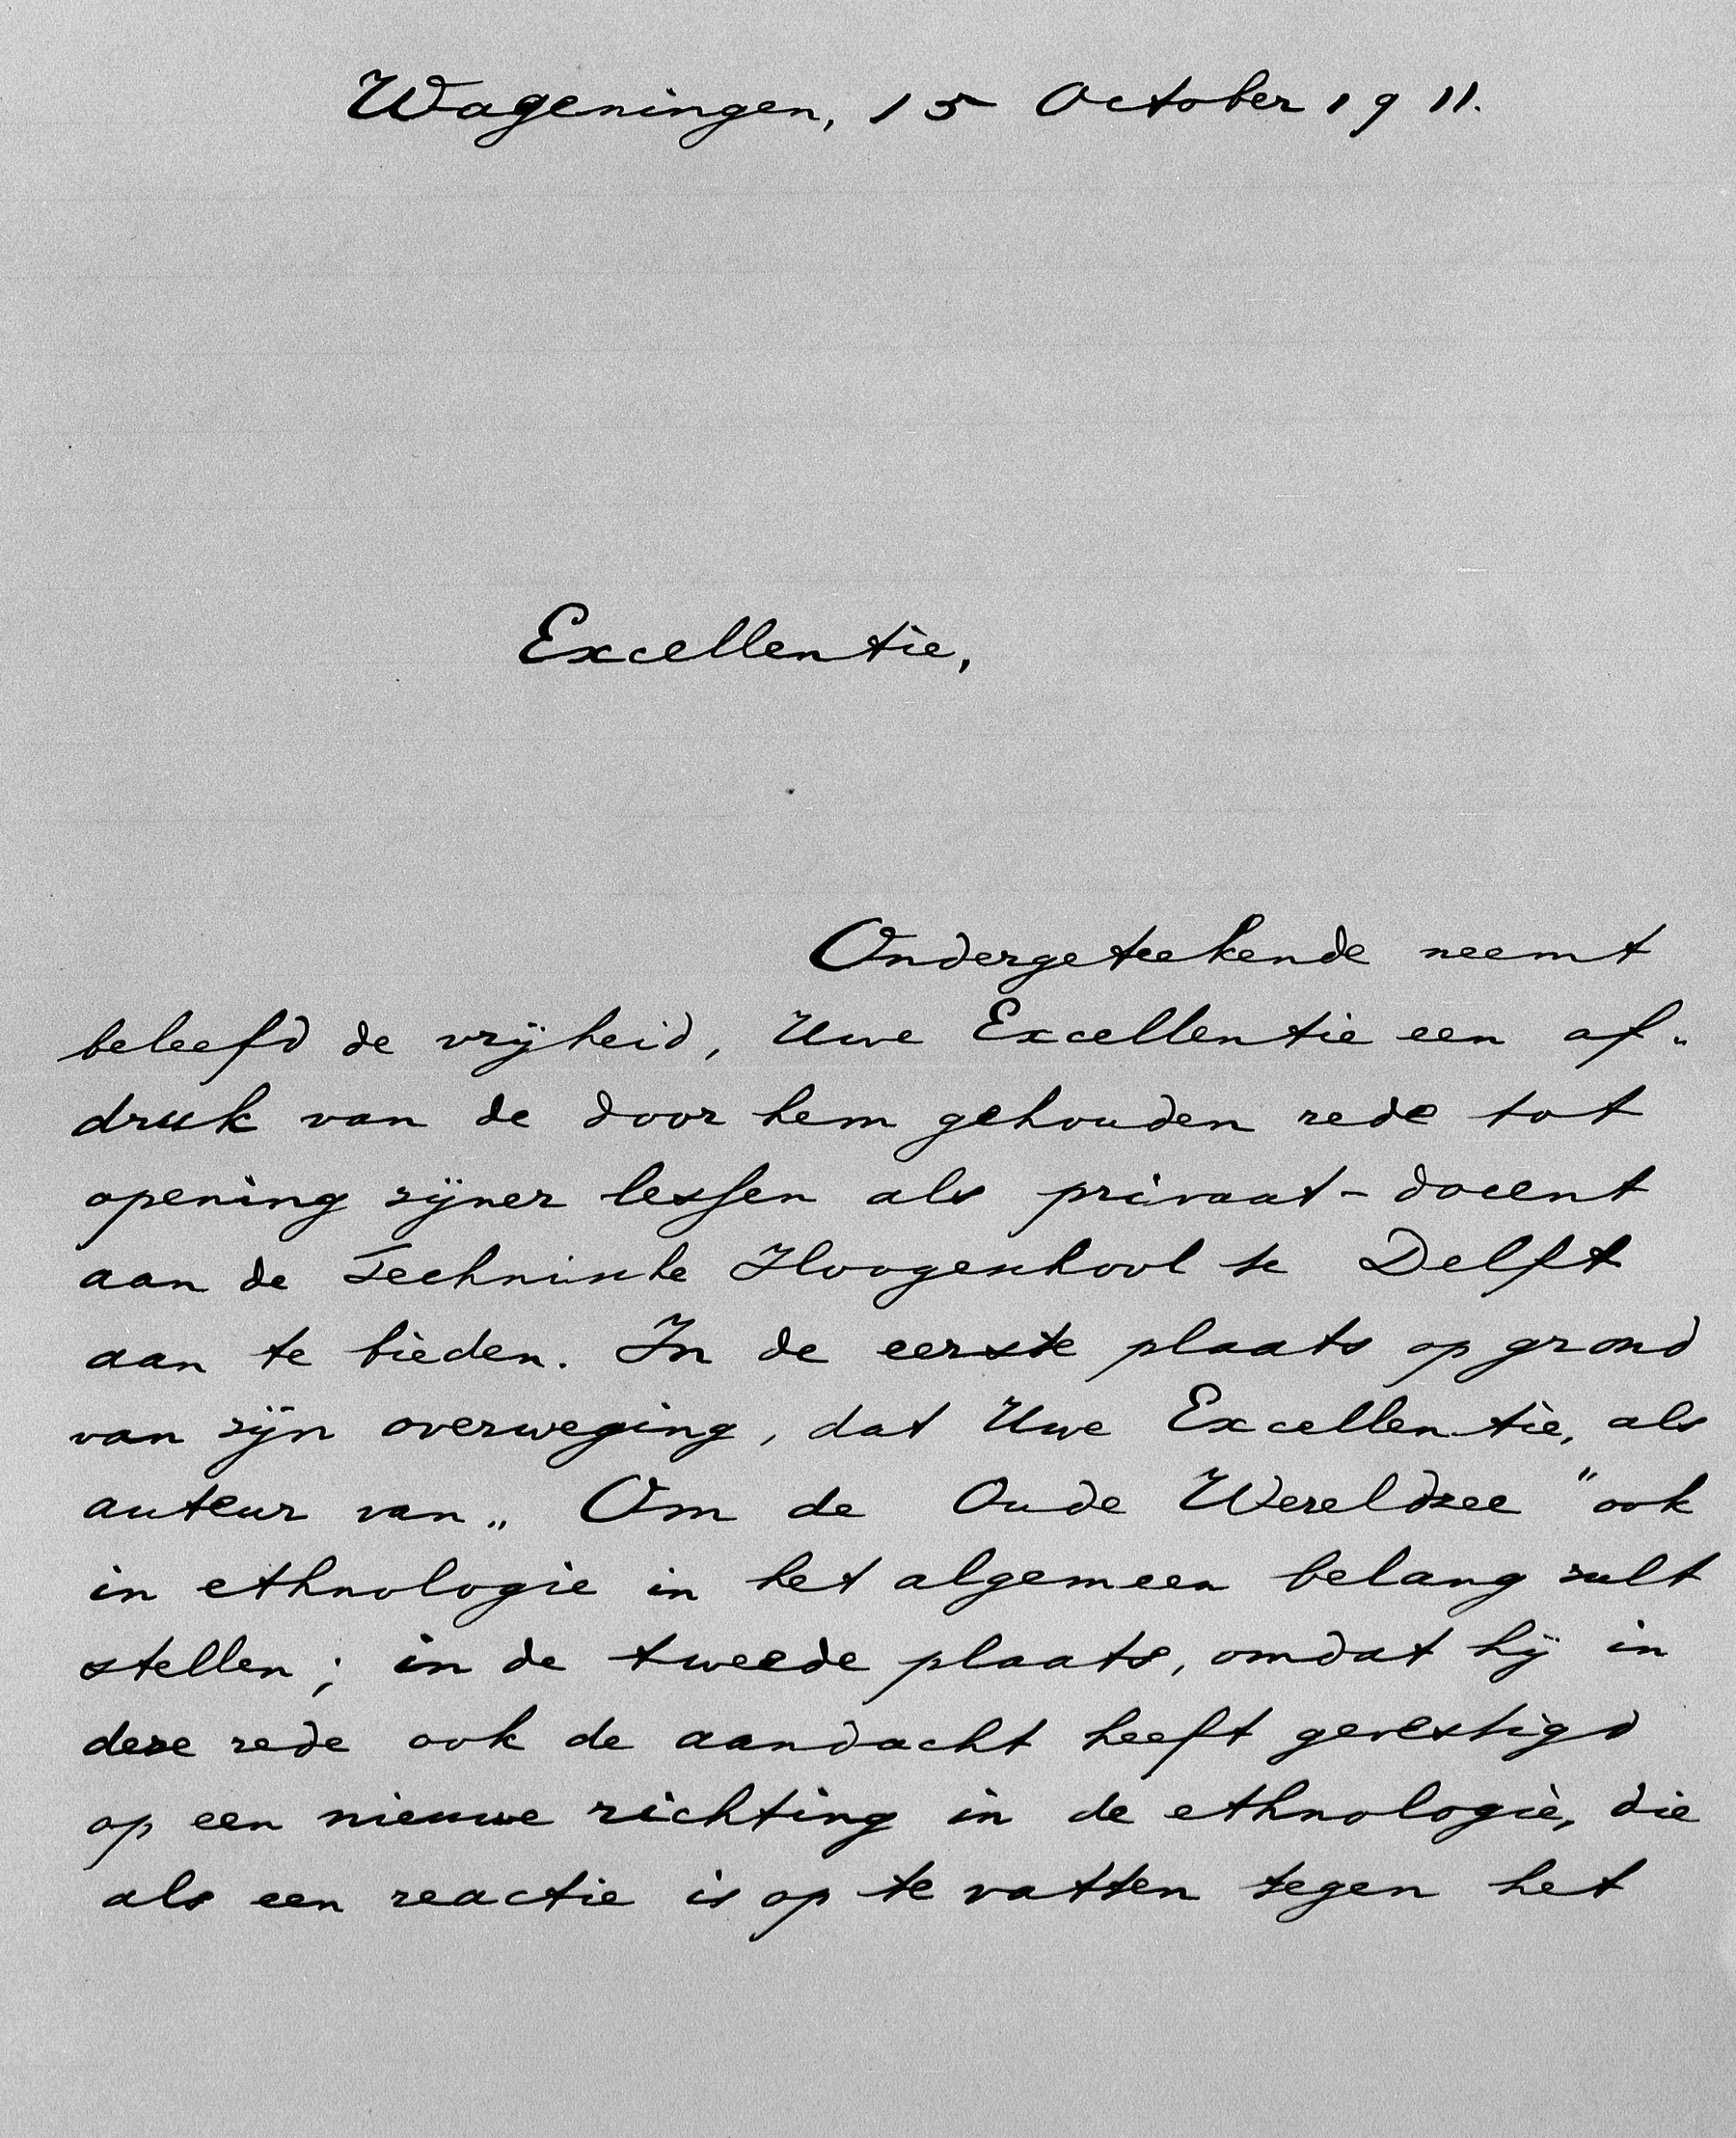 Wageningen, 15 October 1911.
Excellentie,
Ondergeteekende neemt
beleefd de vrijheid, Uwe Excellentie een af„
druk van de door hem gehouden rede tot
opening zijner lessen als privaat-docent
aan de Technische Hoogeschool te Delft
aan te bieden. In de eerste plaats op grond
van zijn overweging, dat Uwe Excellentie, als
auteur van „Om de Oude Wereldzee" ook
in ethnologie in het algemeen belang zult
stellen; in de tweede plaats, omdat hij in
deze rede ook de aandacht heeft gevestigd
op een nieuwe richting in de ethnologie, die
als een reactie is op te vatten tegen het